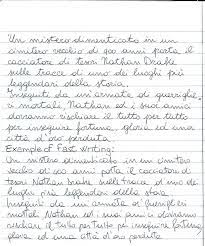 Un mistero dimenticato in un
cimitero vecchio di 400 anni porta il
cacciatore di tesori Nathan Drake
sulle tracce di uno dei luoghi più
leggendari della storia.
Inseguiti da un'armata di guerriglieri
mortali, Nathan ed i suoi amici
dovranno rischiare il tutto per tutto
per inseguire fortuna, gloria ed una
città d'oro perduta.
Example of Fast Writing:
Un mistero dimenticato in un cimitero
vecchio di 400 anni porta il cacciatore di
tesori Nathan Drake sulle tracce di uno dei
luoghi più leggendari della storia.
Inseguiti da una armata di guerriglieri
mortali Nathan ed i suoi amici dovranno
rischiare il tutto per tutto per inseguire fortuna,
gloria ed una città d'oro perduta